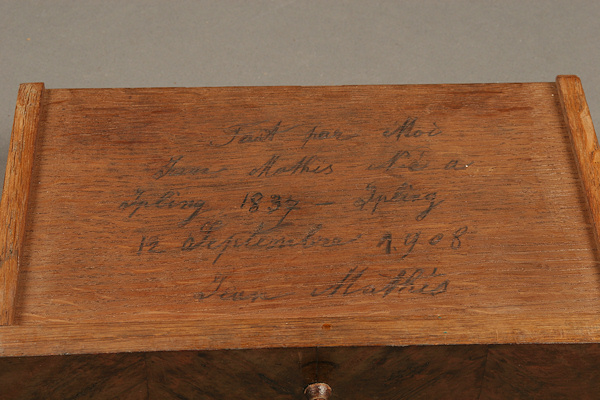 Fait par Moi
Jean Mathis Né a
Ipling 1837 - Ipling
12 Septembre 1908
Jean Mathis